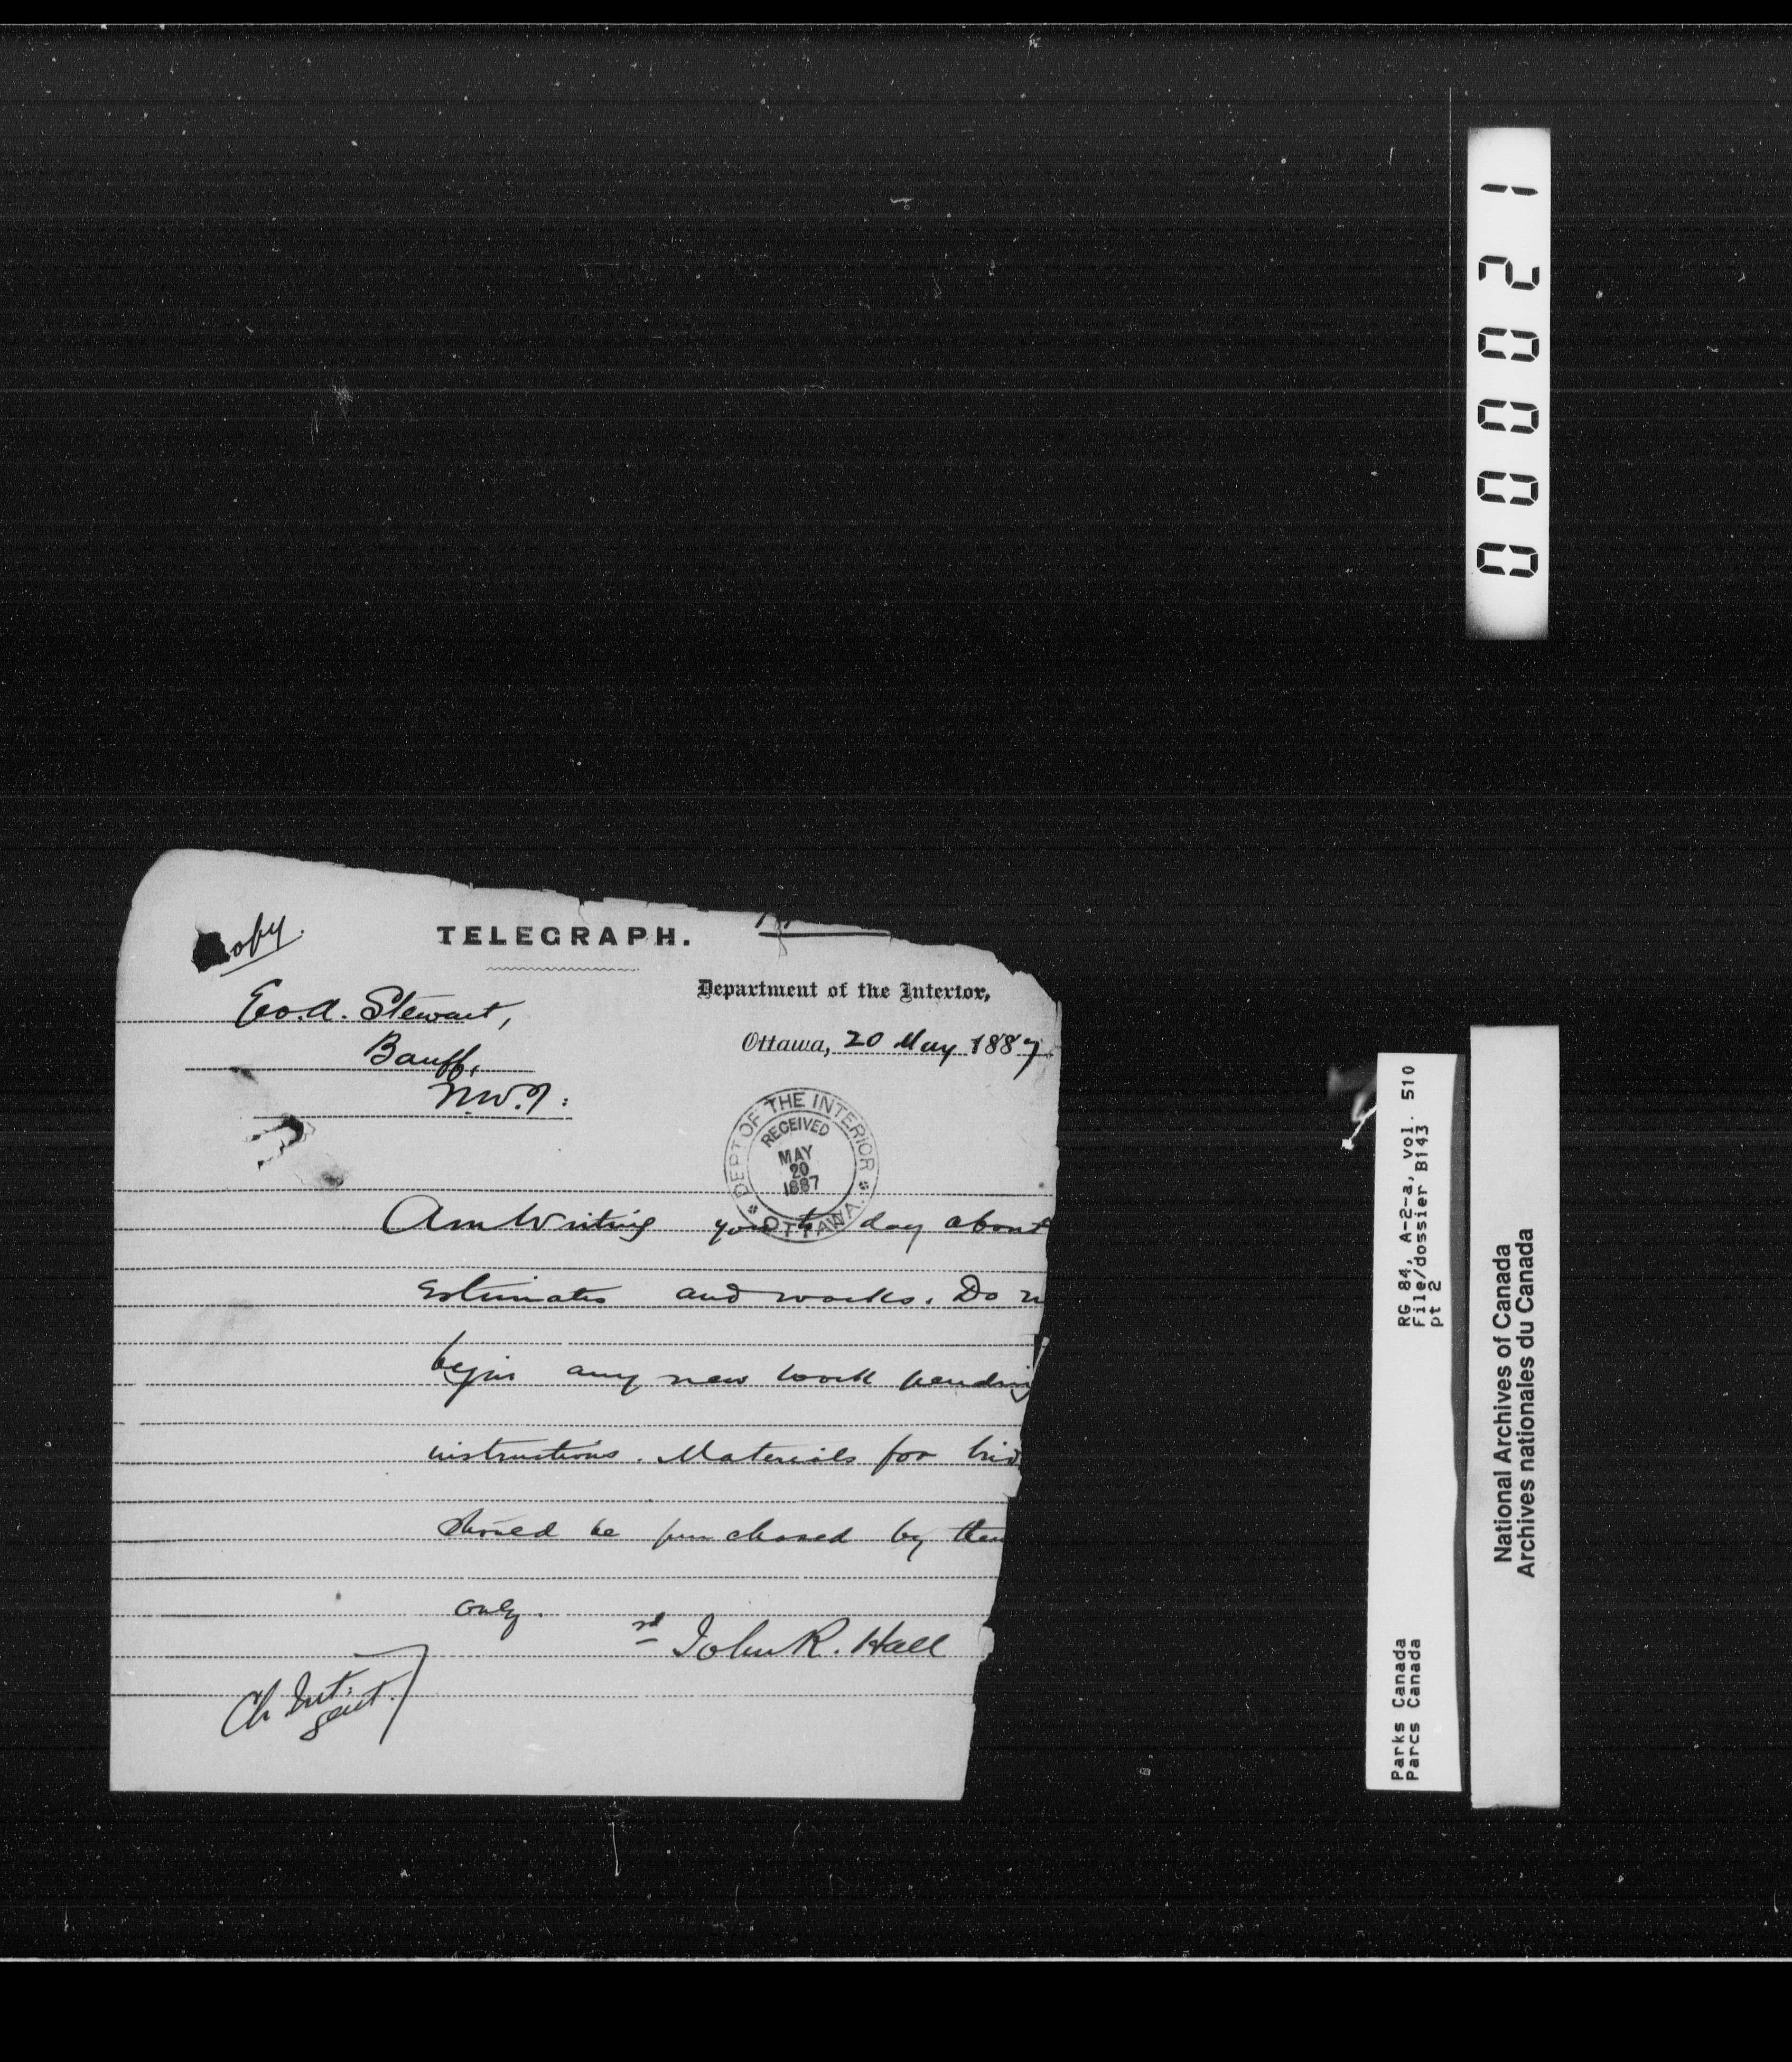 Copy.
TELEGRAPH.
Department of the Interior,
Geo. A. Stewart,
Ottawa, 20 May 1887
Banff,
N.W.T:
DEPT OF THE INTERIOR
RECEIVED
MAY
20
1887
OTTAWA.
Am Writing you to day about
Estimates and works. Do n
begin any new work pending
instructions. Materials for brid
should be purchased by them
only.
sd John R. Hall
Ch Int:
sent.
000021
RG 84, A-2-a, vol. 510
File/dossier B143
pt 2
Parks Canada
Parcs Canada
National Archives of Canada
Archives nationales du Canada